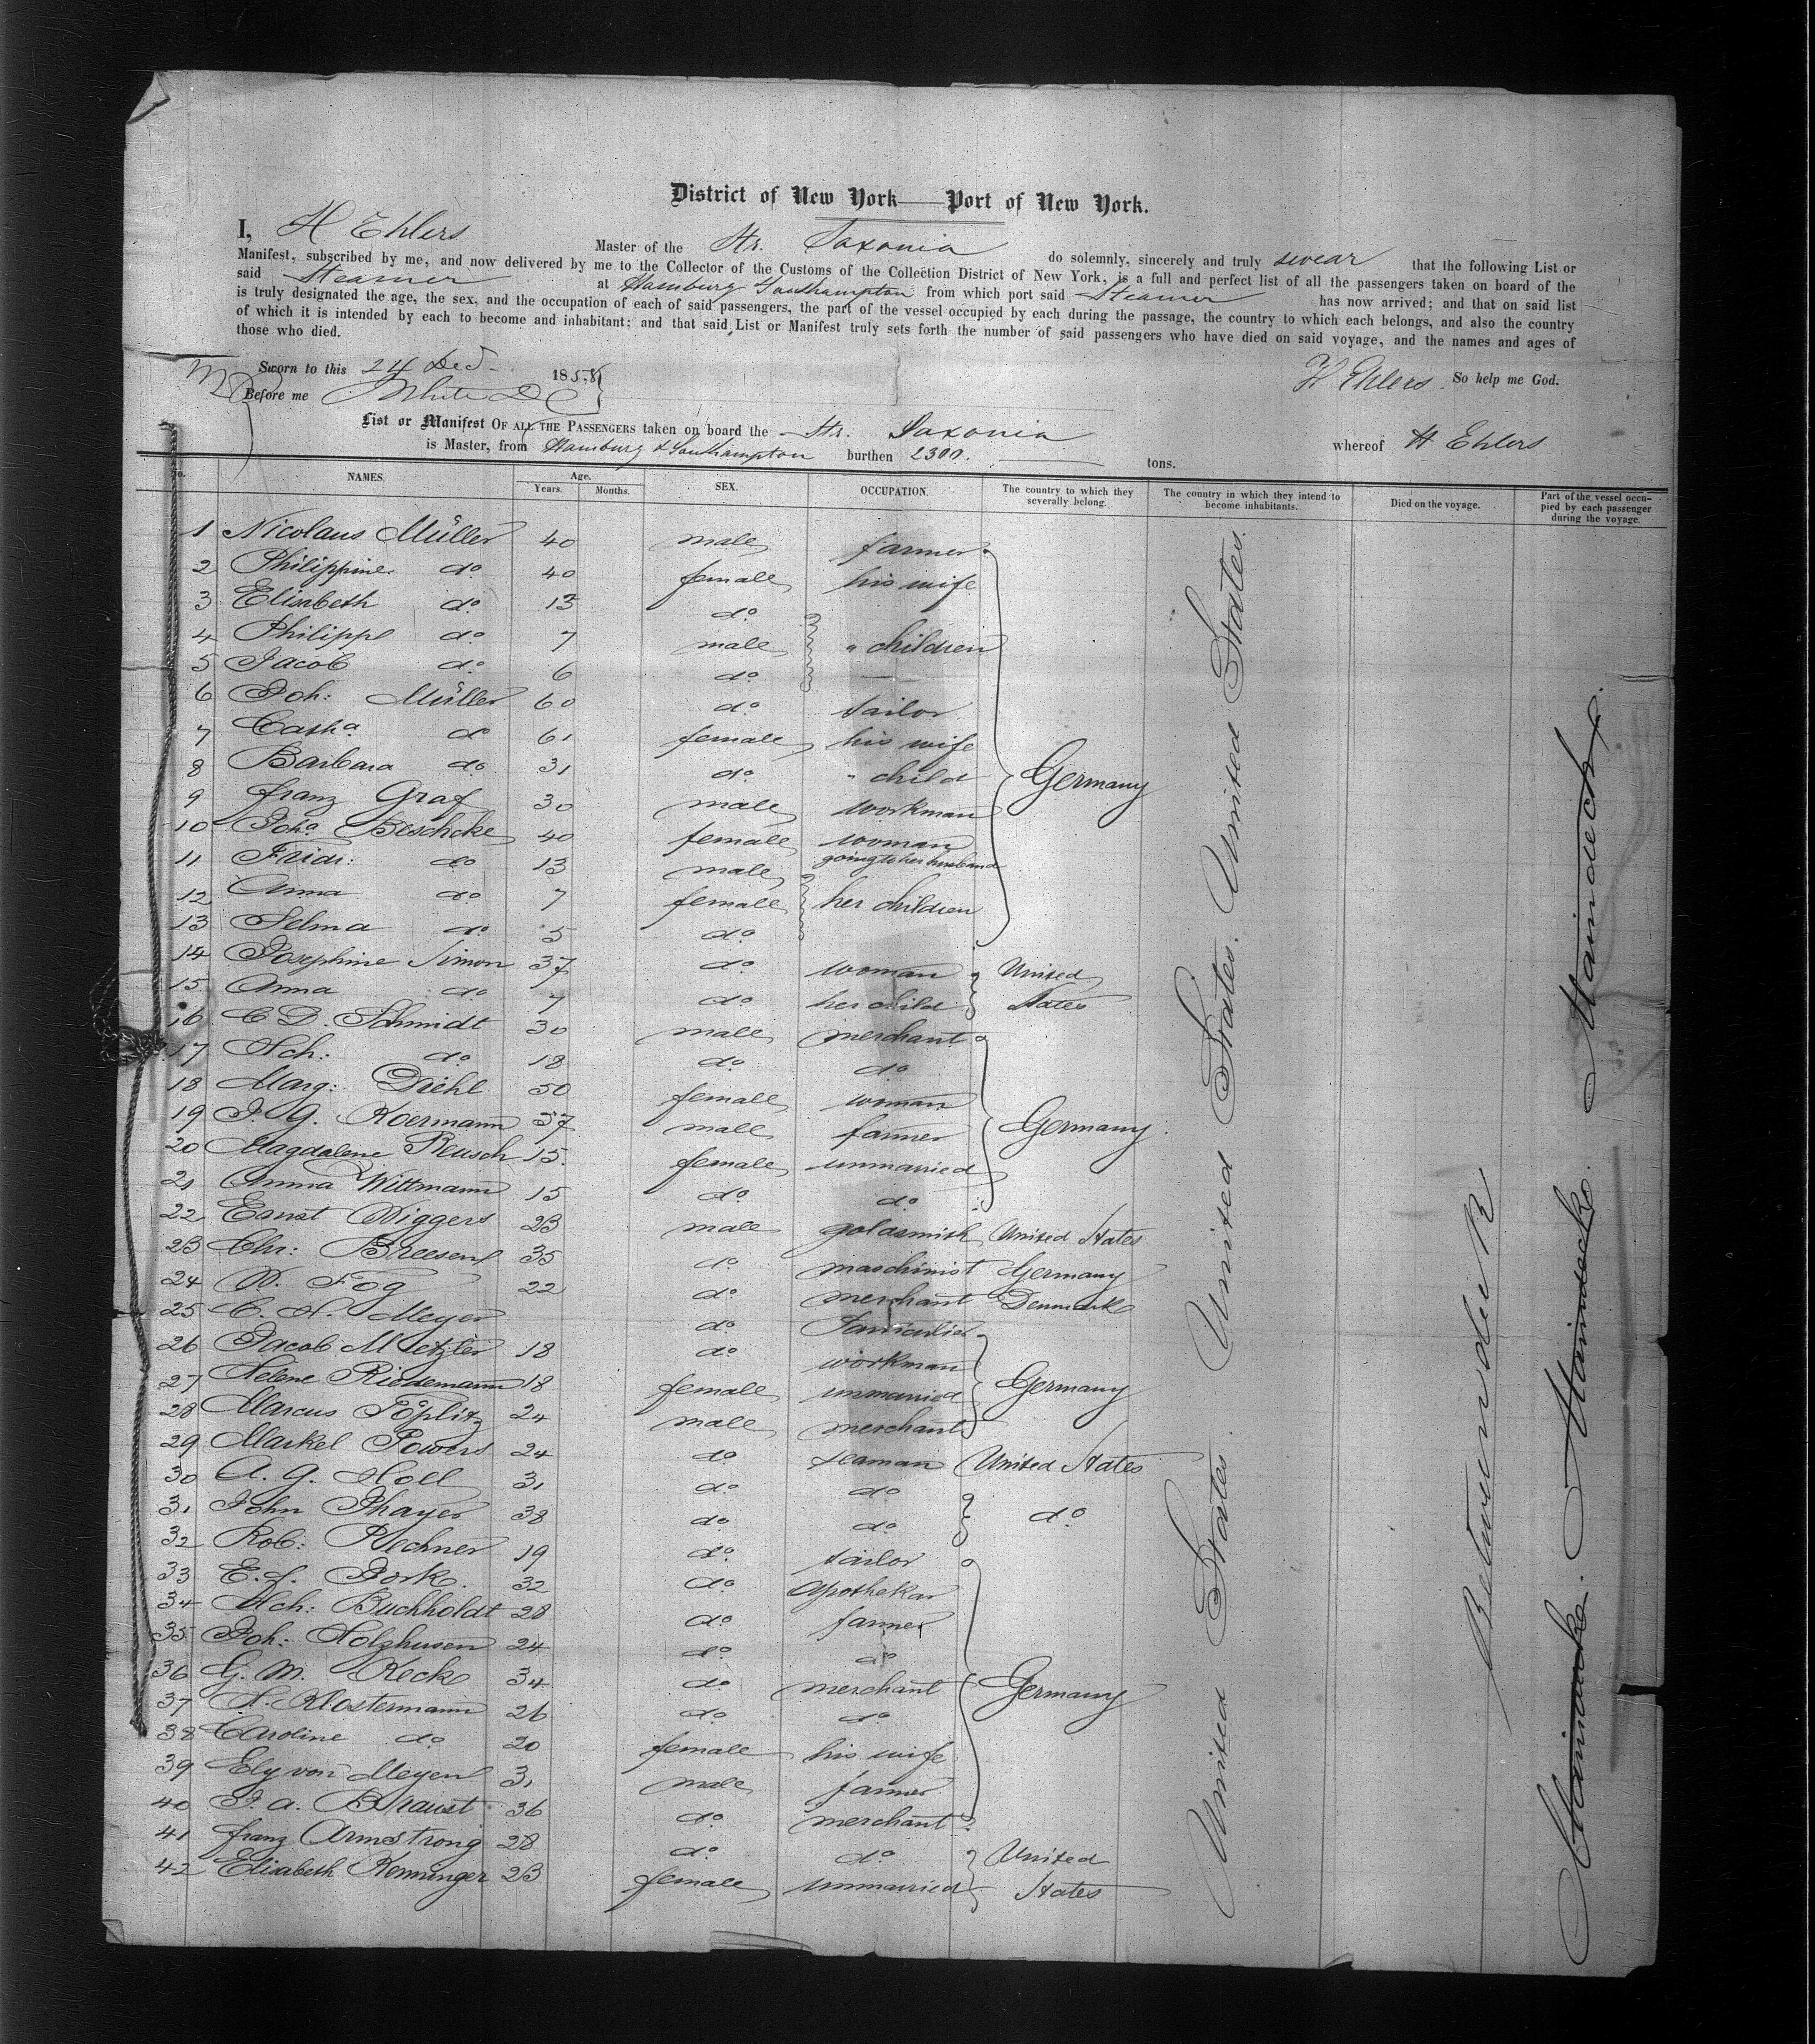 District of New York—Port of New York.
I, H Ehlers Master of the Str. Saxonia do solemnly, sincerely and truly swear that the following List or
Manifest, subscribed by me, and now delivered by me to the Collector of the Customs of the Collection District of New York, is a full and perfect list of all the passengers taken on board of the
said Steamer at Hamburg Southampton from which port said Steamer has now arrived; and that on said list
is truly designated the age, the sex, and the occupation of each of said passengers, the part of the vessel occupied by each during the passage, the country to which each belongs, and also the country
of which it is intended by each to become and inhabitant; and that said List or Manifest truly sets forth the number of said passengers who have died on said voyage, and the names and ages of
those who died.
Sworn to this 24 Dec. 1858 H Ehlers. So help me God.
Before me White D C
List or Manifest OF ALL THE PASSENGERS taken on board the Str. Saxonia whereof H Ehlers
is Master, from Hamburg & Southampton burthen 2300. tons.
No. NAMES. Age. Years. Months. SEX. OCCUPATION. The country to which they severally belong. The country in which they intend to become inhabitants. Died on the voyage. Part of the vessel occupied by each passenger during the voyage.
1 Nicolaus Müller 40 male farmer
2 Philippine do 40 female his wife
3 Elisabeth do 13 do
4 Philipp do 7 male " children
5 Jacob do 6 do
6 Joh: Müller 60 do tailor
7 Catha do 61 female his wife
8 Barbara do 31 do " child Germany
9 Franz Graf 30 male workman
10 Joha Beschcke 40 female woman going to her husband
11 Fridr: do 13 male
12 Anna do 7 female her children
13 Selma do 5 do
14 Josephine Simon 37 do woman United
15 Anna do 7 do her child States
16 C D. Schmidt 30 male merchant
17 Hch: do 18 do do
18 Marg: Diehl 50 female woman
19 J. G. Koermann 37 male farmer Germany
20 Magdalene Reusch 15. female unmarried
21 Anna Wittmann 15 do do
22 Ernst Wiggers 23 male goldsmith United States
23 Chr: Breesen 35 do maschinist Germany
24 W. Fog 22 do merchant Denmark
25 C. H. Meyer do
26 Jacob Metzler 18 do workman
27 Helene Riedemann 18 female unmarried Germany
28 Marcus Töplitz 24 male merchant
29 Markel Powers 24 do seaman United States
30 A. G. Holl 31 do do
31 John Thayer 38 do do do
32 Rob: Rechner 19 do tailor
33 E. J. Jork. 32 do Apothekar
34 Hch: Buchholdt 28 do farmer
35 Joh: Holzhusen 24 do do
36 G. M. Keck 34 do merchant Germany
37 H. Klostermann 26 do do
38 Caroline do 20 female his wife
39 Ely von Meyen 31 male farmer
40 J. a. Braust 36 do merchant
41 Franz Armstrong 28 do do United
42 Elisabeth Renninger 23 female unmarried States
United States. United States. United States. United States.
Between deck
Maindeck. Maindeck. Maindeck.